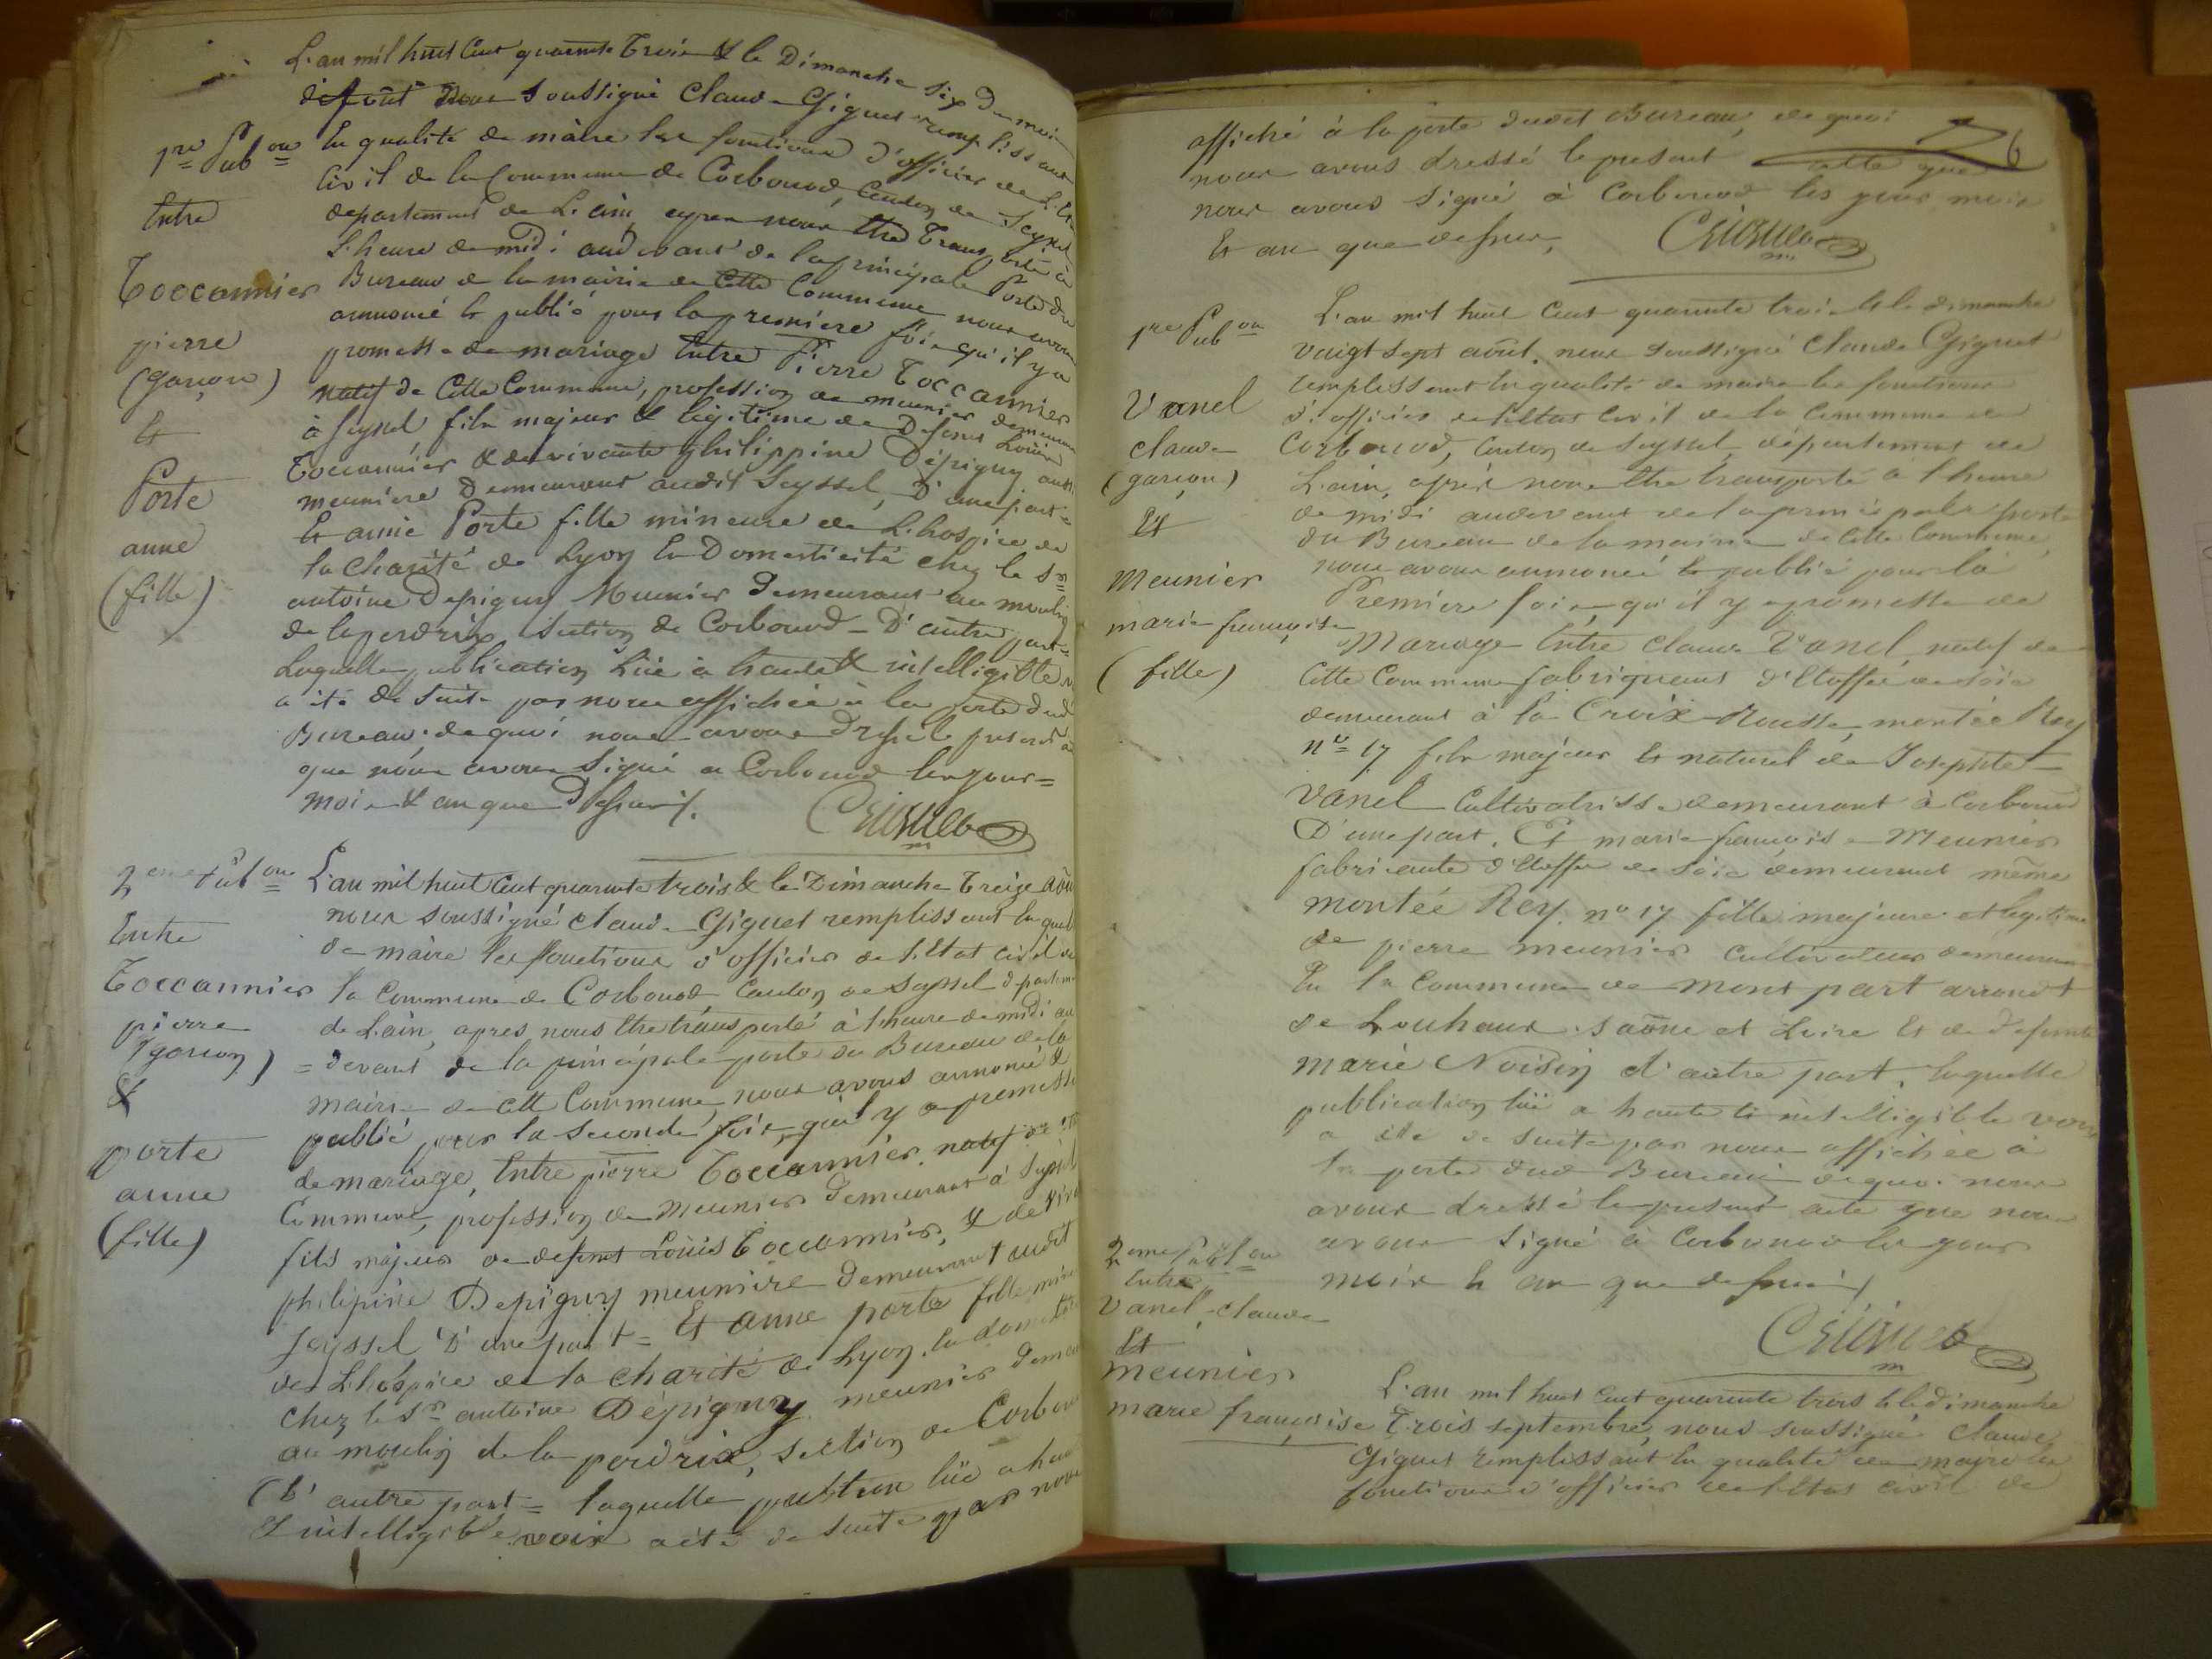 L'an mil huit Cent quarante Trois & le Dimanche Six du moi
d'août Nous Soussigné Claude Giguet remplissant
1re Pubon
En qualité de maire les fonctions d'officier de l'Etat
Civil de la Commune de Corbonod, Canton de Seyssel
Entre
departement de L'ain, apres nous être Transporté à
l'heure de midi audevant de la principale Porte du
Toccannier
Bureau de la mairie de Cette Commune nous avons
annoncé & publié pour la premiere fois qu'il y a
pierre
promesse de mariage Entre Pierre Toccannier
(garçon)
natif de Cette Commune, profession de meunier demeurant
&
à Seyssel fils majeur & légitime de Defunt Louis
Toccannier & de vivante philippine Dépigny aussi
Porte
meuniere Demeurant audit Seyssel, D'une part =
Et anne Porte fille mineure de L'hospice de
anne
la Charité de Lyon En Domesticité chez le Sr
(fille)
antoine Depigny Meunier Demeurant au moulin
de la perdrix, Section de Corbonod - D'autre part =
Laquelle publication Lüe à haute & intelligible
a été de Suite par nous affichée à la porte dud
Bureau, de quoi nous avons Dressé le present
que nous avons Signé à Corbonod les jour =
mois & an que Dessus /.
CGIGUET
2eme Pubon
L'an mil huit Cent quarante trois & le Dimanche Treize Aôut
nous soussigné claude Giguet remplissant En qual
Entre
de maire les fonctions d'officier de l'Etat civil de
Toccannier
la Commune de Corbonod Canton de Seyssel departemen
pierre
de L'ain, apres nous être transporté à l'heure de midi au
(garcon)
= devant de la principale porte du Bureau de la
&
mairie de cette Commune, nous avons annoncé &
publié pour la seconde fois, qu'il y a promesse
porte
de mariage, Entre pierre Toccannier, natif de
anne
Commune, profession de meunier Demeurant à Seyssel
(fille)
fils majeur de defunt Louis Toccannier, & de
philipine Depigny meuniere Demeurant audit
Seyssel D'une part = Et anne porte fille
de L'hospice de la charité de Lyon, En
chez le Sr antoine Dépigny meunier
au moulin de la perdrix, section de
D'autre part = laquelle lüe a
& intelligible voix a été de suite par nous
6
affiché à la porte dudit Bureau, de quoi
nous avons dressé le present acte que
nous avons signé à Corbonod les jour mois
Et an que dessus,
CGIGUET
1re Pubon
L'an mil huit Cent quarante trois & le dimanche
vingt sept août, nous soussigné Claude Giguet
remplissant En qualité de maire les fonctions
Vanel
d'officier de l'Etat Civil de la Commune de
claude
Corbonod, Canton de Seyssel, département de
(garçon)
L'ain, après nous être transporté à l'heure
de midi audevant de la principale porte
Et
du Bureau de la mairie de Cette Commune,
nous avons annoncé & publié pour la
meunier
Premiere fois qu'il y a promesse de
marie françoise
Mariage Entre Claude Vanel, natif de
(fille)
Cette Commune fabriquant d'Etoffe de Soie
demeurant à la Croix-Rousse, montée Rey
no 17 fils majeur & naturel de Josephte
Vanel Cultivatrisse demeurant à Corbonod
D'une part. Et marie françoise Meunier
fabricante d'Etoffe de Soie demeurant même
montée Rey. no 17 fille majeure et legitime
de pierre meunier Cultivateur demeurant
En la Commune de mont part arrondt
de Louhans Saône et Loire Et de defunte
marie Noisin d'autre part, laquelle
publication lüe a haute & intelligible voix
a été de suite par nous affichée à
la porte dud Bureau de quoi nous
avons dressé le present acte que nous
avons signé à Corbonod les jour
mois & an que dessus /
CGIGUET
2eme Pubon
Entre
Vanel, claude
Et
meunier
L'an mil huit Cent quarante trois & le dimanche
marie françoise
Trois septembre, nous soussigné Claude
Giguet remplissant En qualité de maire les
fonctions d'officier de l'Etat civil de